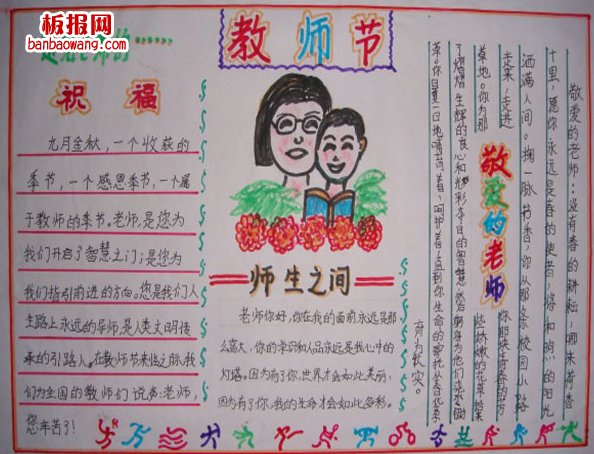 板报网
banbaowang.com
老师的
祝福
九月金秋，一个收获的
季节，一个感恩季节，一个属
于教师的季节。老师，是您为
我们开启了智慧之门；是您为
我们指引前进的方向。您是我们人
生路上永远的导师，是人类文明传
承的引路人。在教师节来临之际，我
们为全国的教师们说声：老师，
您辛苦了！
教师节
师生之间
老师你好，你在我的面前永远是那
么高大，你的学识和人品永远是我心中的
灯塔。因为有了你，世界才会如此美丽，
因为有了你，我的生命才会如此多彩。
敬爱的老师
敬爱的老师：没有春的耕耘，哪来荷香
十里，愿你永远是春的使者，将和煦的阳光
洒满人间。掬一脉书香，你从那条校园小路
走来，走进
草地。你为那
些娇嫩的花草
了熠熠生辉的良心和光彩夺目的智慧